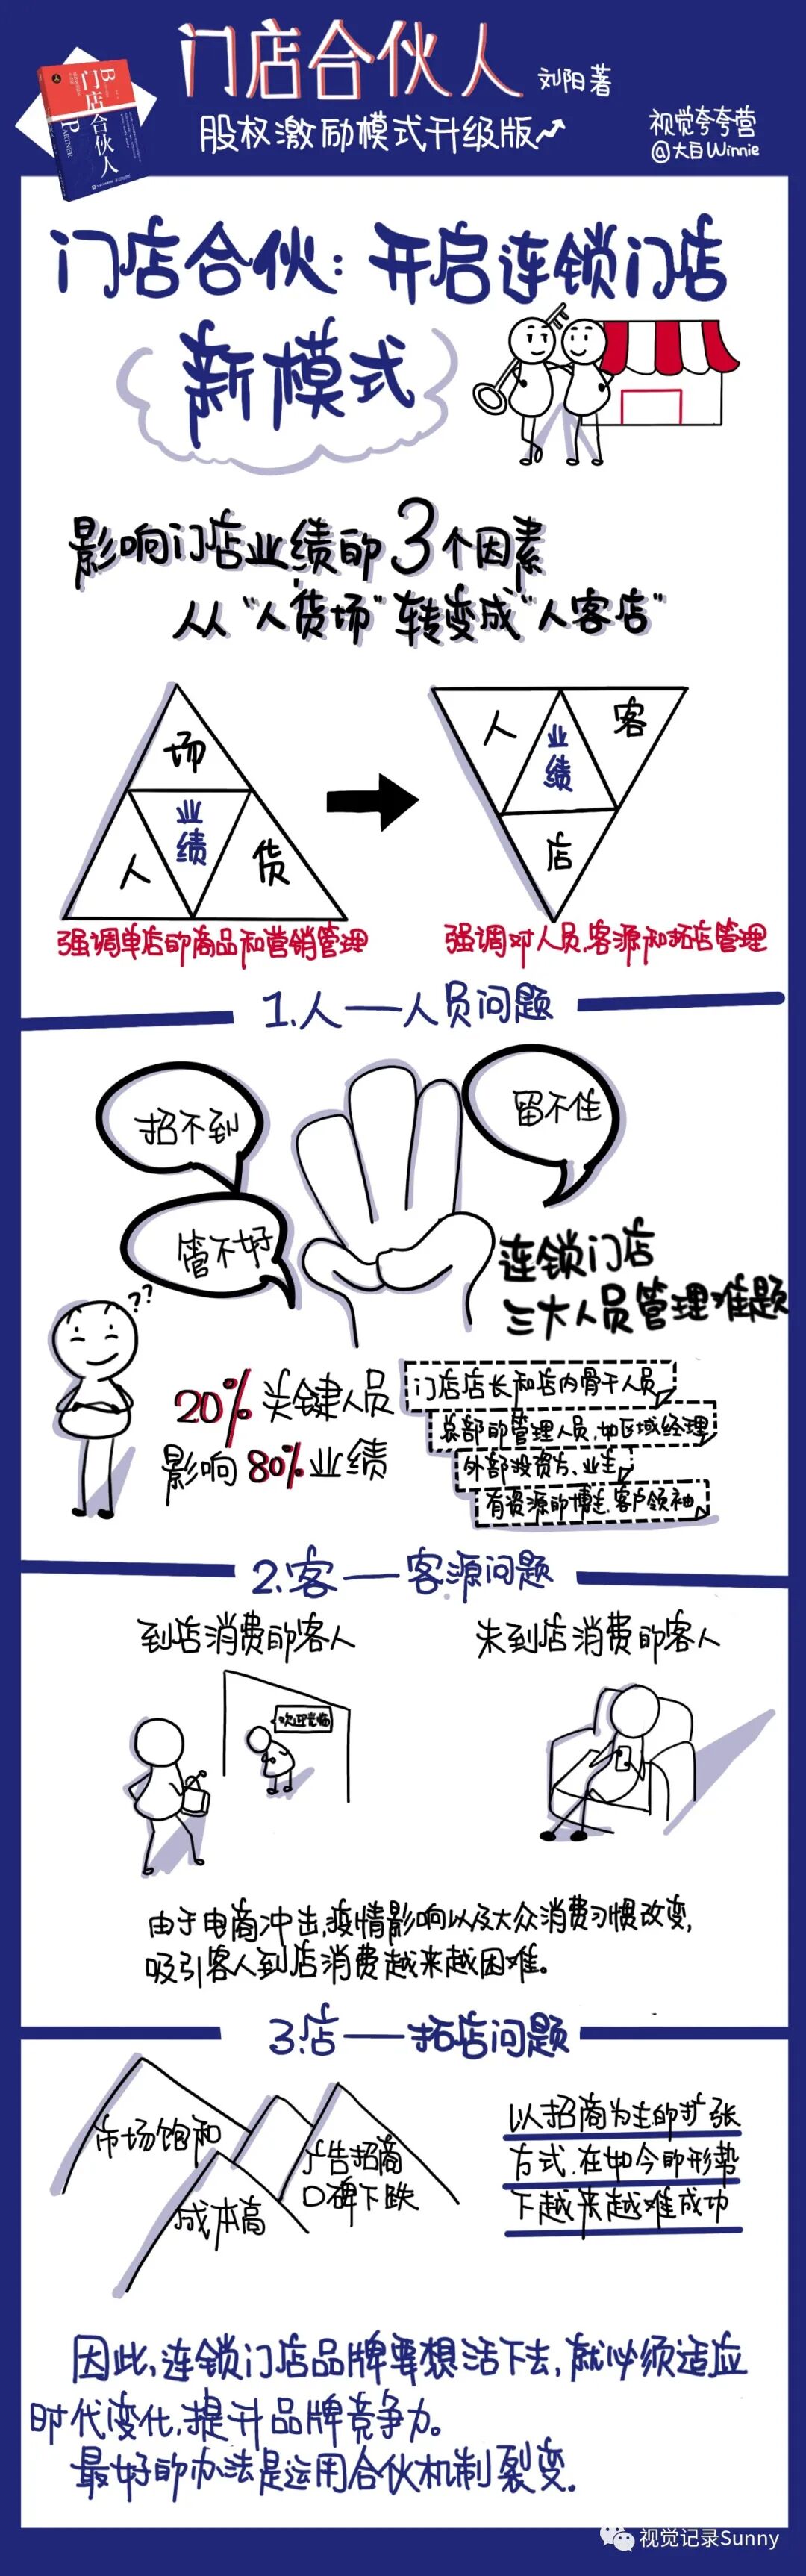 门店合伙人 刘阳著
股权激励模式升级版
视觉夸夸营
@大白Winnie
门店合伙人
PARTNER
门店合伙：开启连锁门店
新模式
影响门店业绩的3个因素
从"人货场"转变成"人客店"
场
业绩
人
货
人
业绩
客
店
强调单店的商品和营销管理
强调对人员.客源和拓店管理
1.人——人员问题
招不到
留不住
管不好
连锁门店
三大人员管理难题
??
20%关键人员
影响80%业绩
门店店长和店内骨干人员
总部的管理人员,如区域经理
外部投资方、业主
有资源的博主.客户领袖
2.客——客源问题
到店消费的客人
未到店消费的客人
欢迎光临
由于电商冲击,疫情影响以及大众消费习惯改变,
吸引客人到店消费越来越困难。
3.店——拓店问题
市场饱和
广告招商
口碑下跌
成本高
以招商为主的扩张
方式.在如今的形势
下越来越难成功
因此,连锁门店品牌要想活下去,就必须适应
时代变化,提升品牌竞争力。
最好的办法是运用合伙机制裂变.
视觉记录Sunny